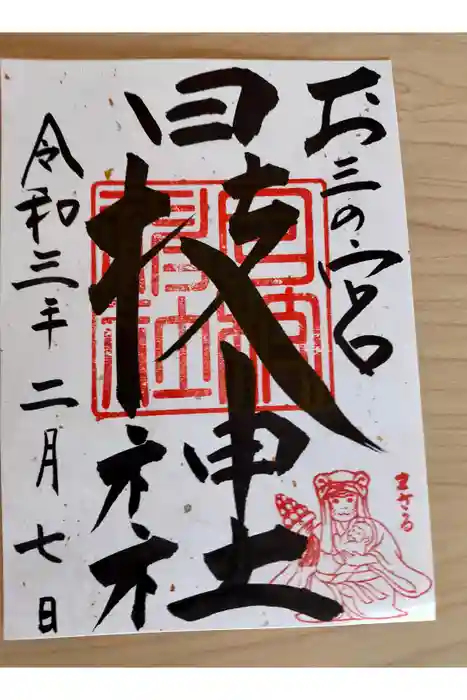 お三の宮
日枝神社
令和三年二月七日
日枝神社
まさる